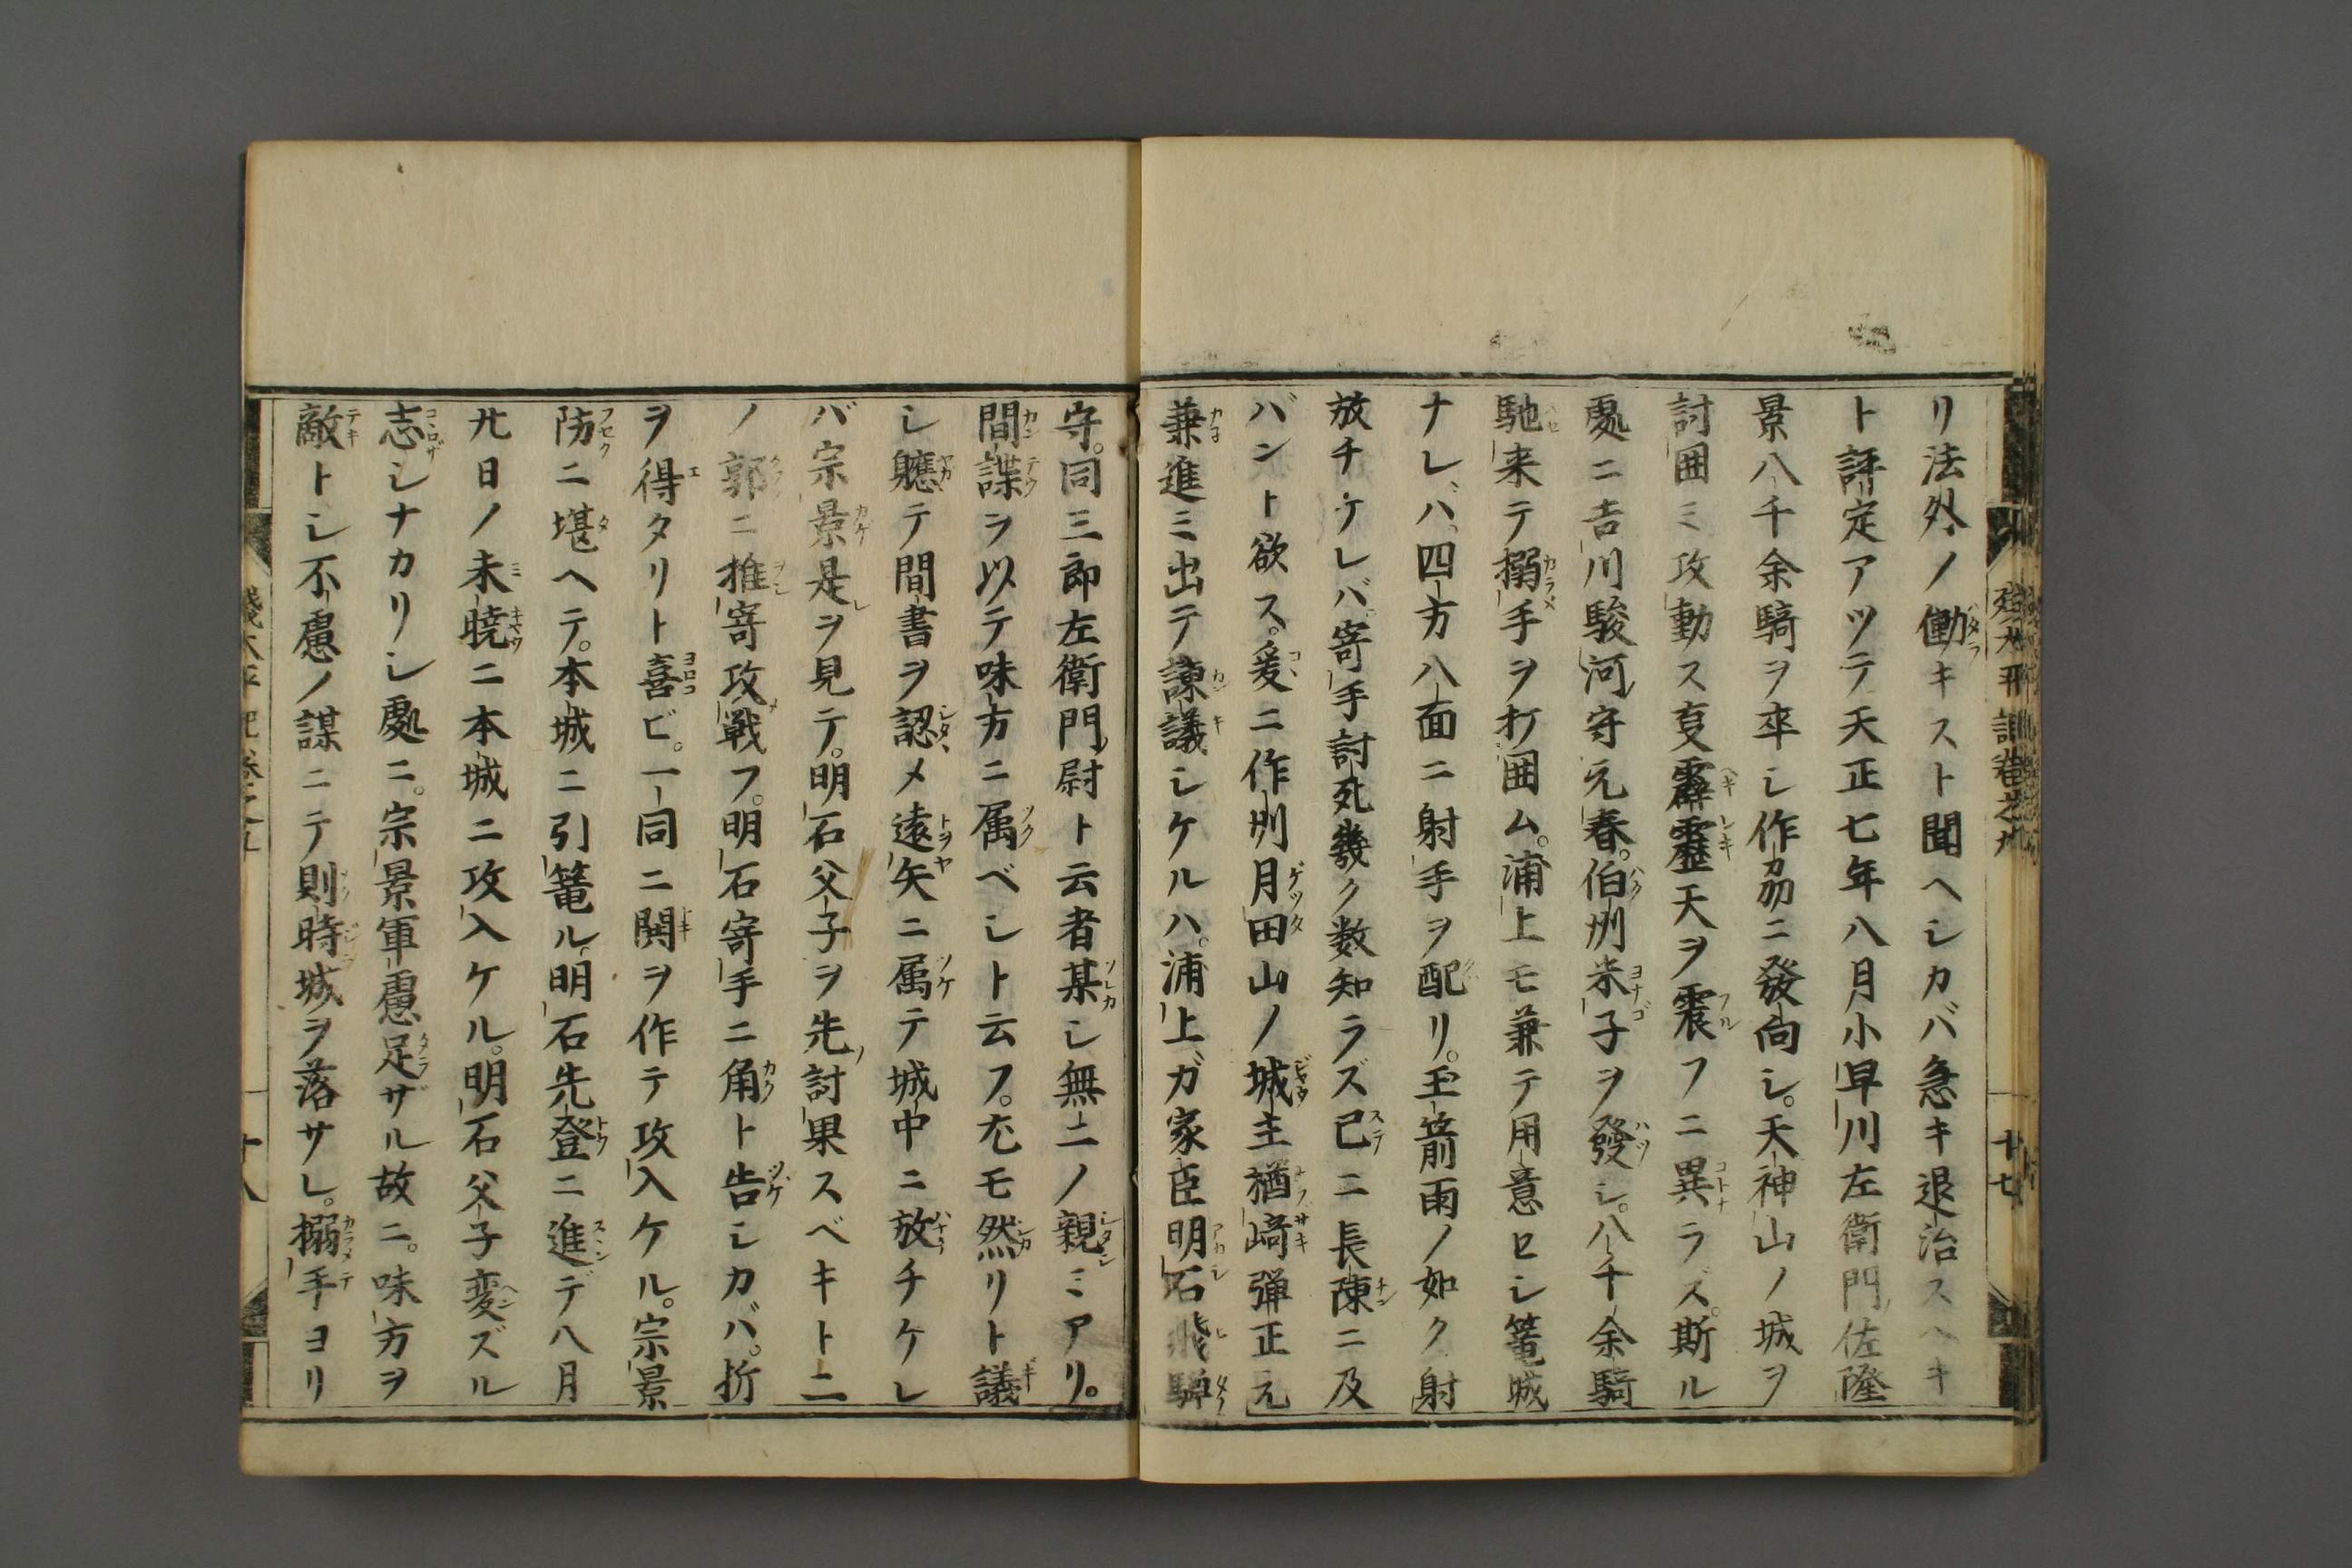 リ法外ノ働キスト聞ヘシカバ急キ退治スヘキ
ト評定アツテ天正七年八月小早川左衛門佐隆
景八千余騎ヲ卒シ作刕ニ發向シ。天神山ノ城ヲ
討囲ミ攻動ス叓霹靂天ヲ震フニ異ラズ。斯ル
處ニ吉川駿河守元春。伯州米子ヲ發シ。八千余騎
馳来テ搦手ヲ打囲ム。浦上モ兼テ用意セシ篭城
ナレバ。四方八面ニ射手ヲ配リ。玉箭雨ノ如ク射
放チケレバ。寄手討死幾ク数知ラズ已ニ長陳ニ及
バント欲ス。爰ニ作州月田山ノ城主楢﨑弾正元
兼進ミ出テ諫議シケルハ。浦上ガ家臣明石飛騨
守。同三郎左衛門尉ト云者某シ無二ノ親ミアリ。
間諜ヲ以テ味方ニ属ベシト云フ。尤モ然リト議
シ軈テ間書ヲ認メ遠矢ニ属テ城中ニ放チケレ
バ宗景是ヲ見テ。明石父子ヲ先討果スベキト二
ノ郭ニ推寄攻戦フ。明石寄手ニ角ト告シカバ。折
ヲ得タリト喜ビ。一同ニ鬨ヲ作テ攻入ケル。宗景
防ニ堪ヘテ。本城ニ引篭ル。明石先登ニ進デ八月
廿日ノ未曉ニ本城ニ攻入ケル。明石父子変ズル
志シナカリシ處ニ。宗景軍慮足サル故ニ。味方ヲ
敵トシ不慮ノ謀ニテ則時城ヲ落サレ。搦手ヨリ
十七